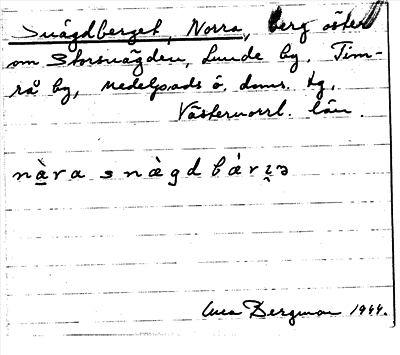 Snägdberget, Norra, berg öster
om Storsnägden, Lunde by. Tim-
rå by, Medelpads ö. doms. tg,
Västernorrl. län.
nàra snàgdbár
Bergman 1944.